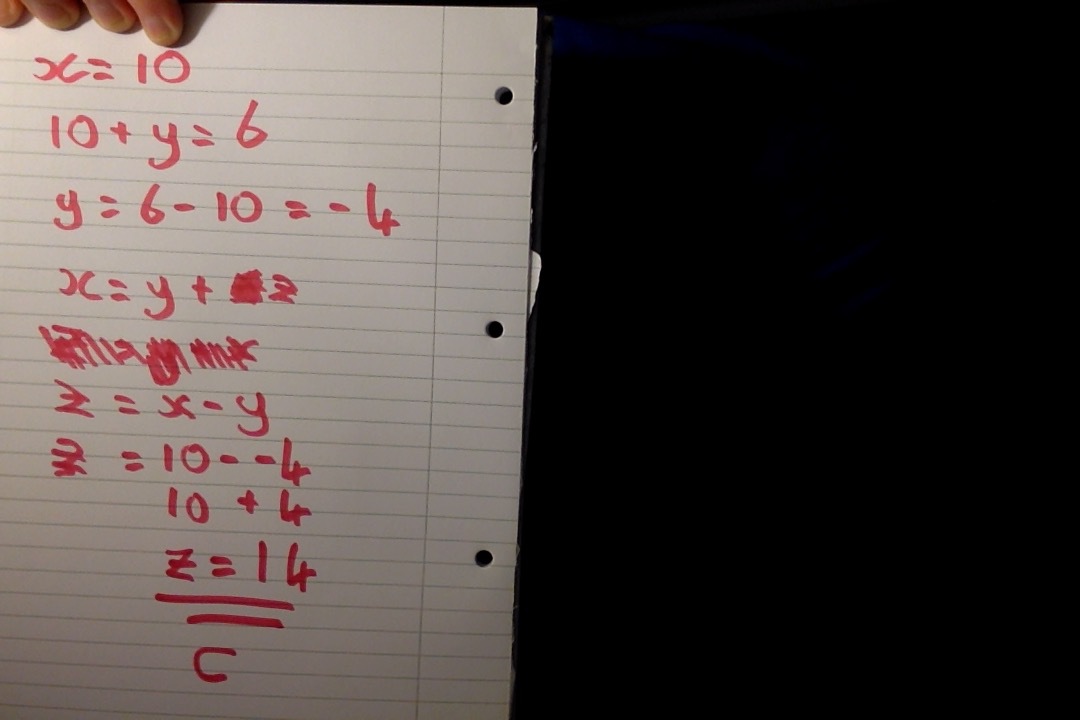 x = 10
10 + y = 6
y = 6 - 10 = - 4
x = y + z
z = x - y
z = 10 - - 4
10 + 4
z = 14
C